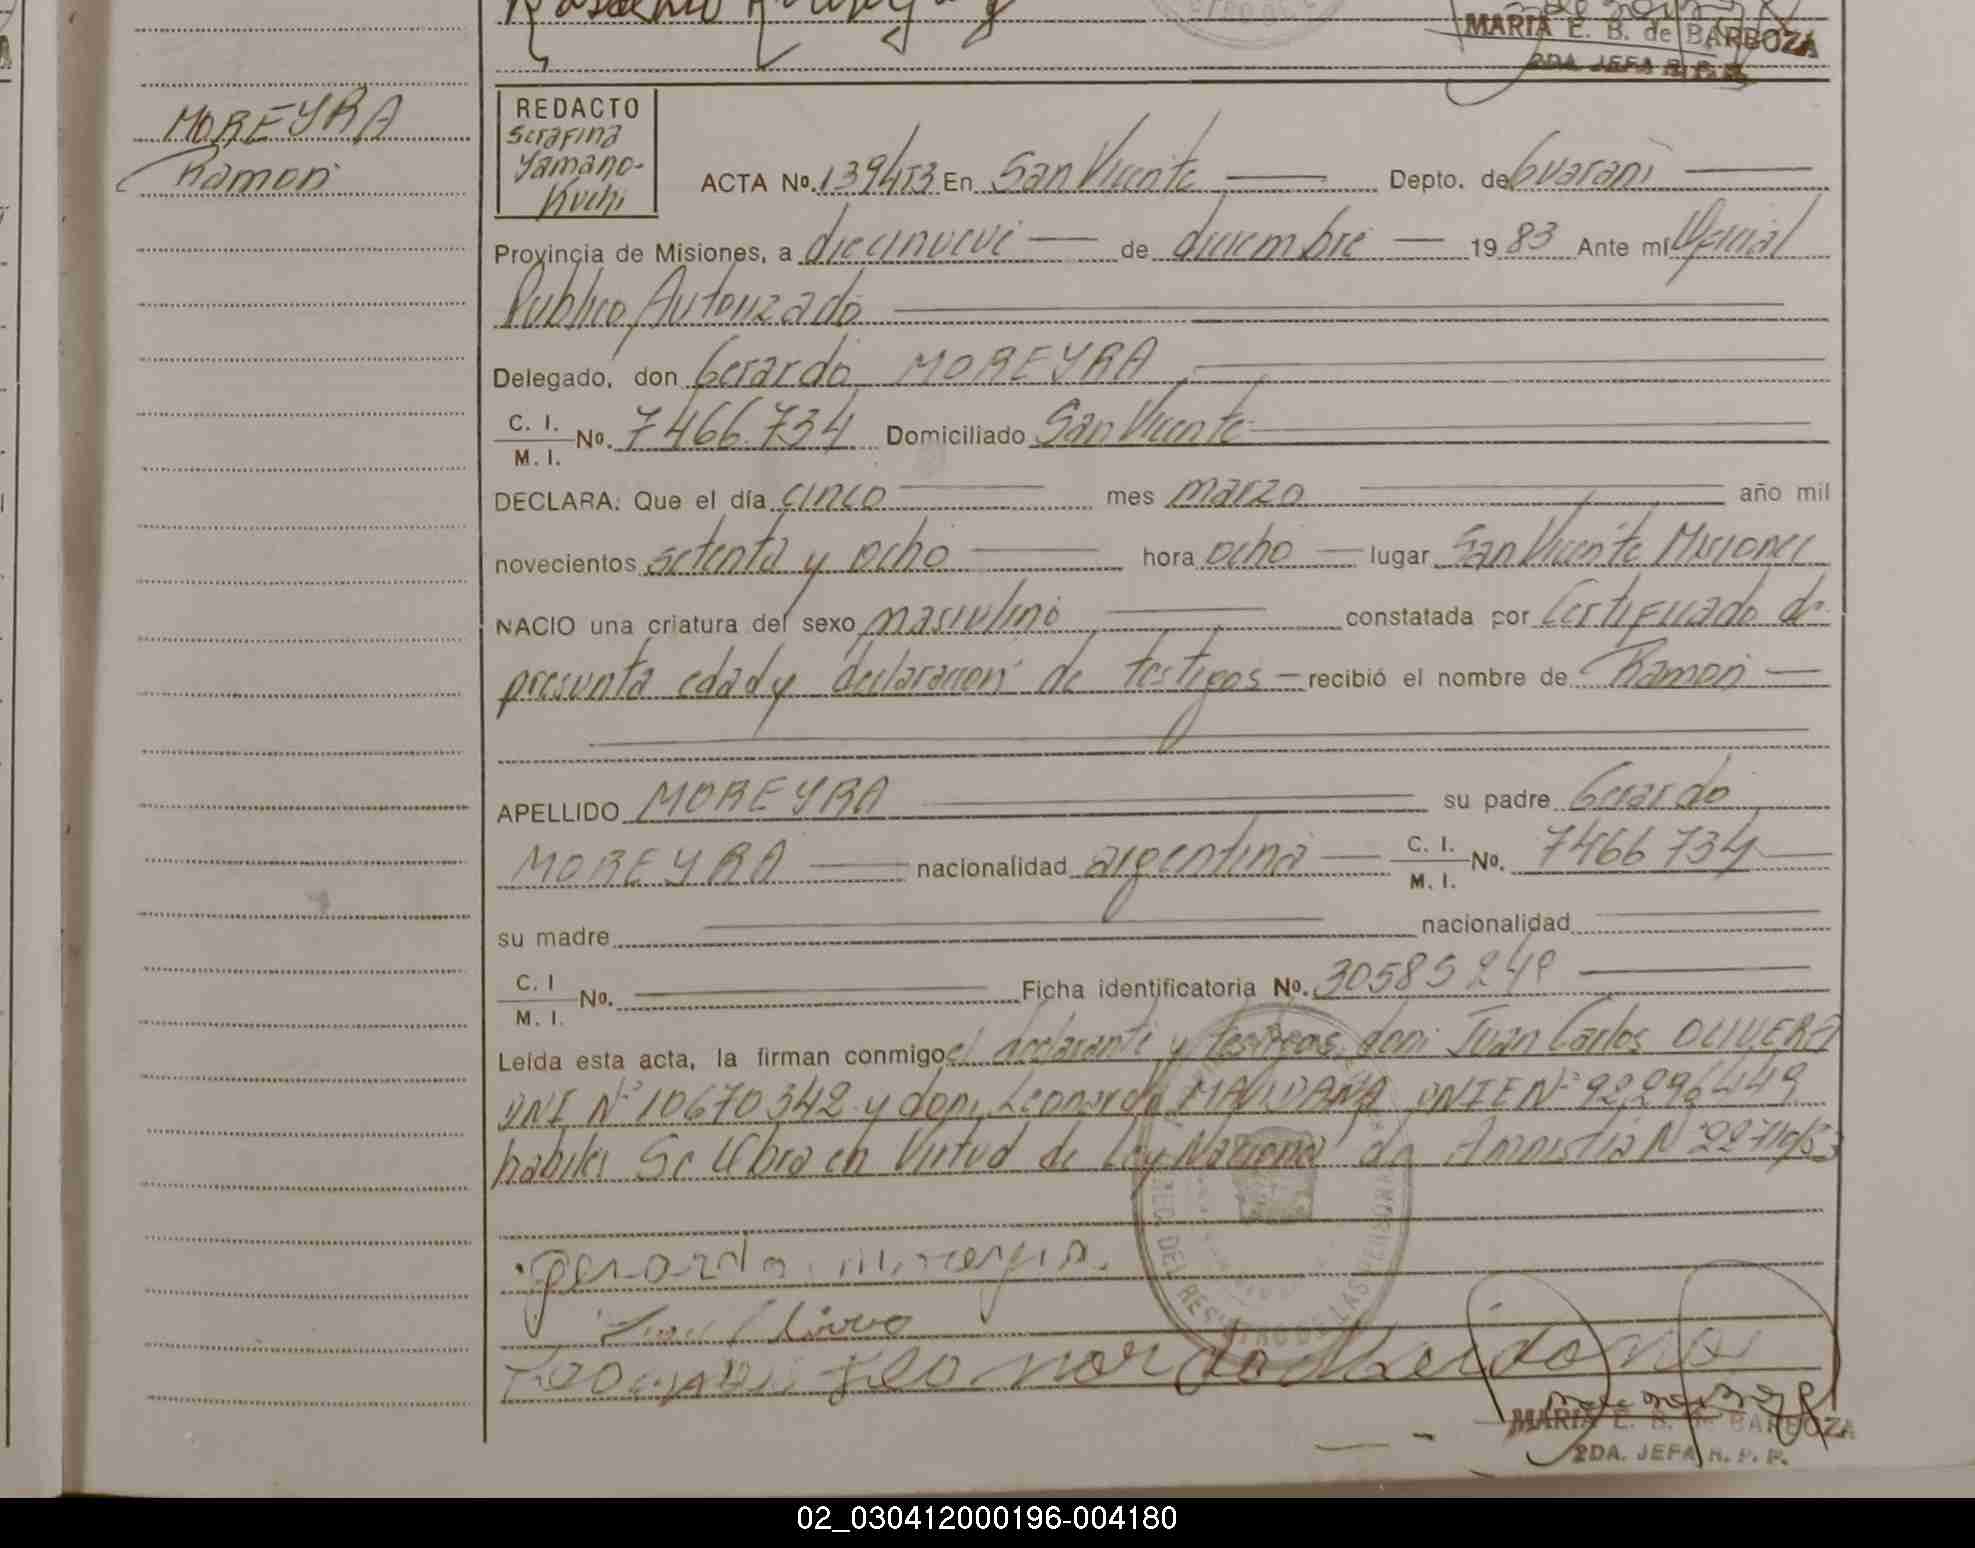 MARIA E. B. de BARBOZA
2DA. JEFA R. P. P.
MOREYRA
Ramon
REDACTO
Serafina
Yamano-
Kuchi
ACTA No. 139453 En San Vicente Depto. de Guarani
Provincia de Misiones, a diecinueve de diciembre 1983 Ante mí Oficial
Publico Autorizado
Delegado, don Gerardo MOREYRA
C. I.
M. I. No. 7466.734 Domiciliado San Vicente
DECLARA: Que el día cinco mes marzo año mil
novecientos setenta y ocho hora ocho lugar San Vicente Misiones
NACIO una criatura del sexo masculino constatada por Certificado de
presunta edad y declaracion de testigos recibió el nombre de Ramon
APELLIDO MOREYRA su padre Gerardo
MOREYRA nacionalidad argentina C. I.
M. I. No. 7466734
su madre nacionalidad
C. I
M. I. No. Ficha identificatoria No. 30585249
Leída esta acta, la firman conmigo el declarante y testigos don: Juan Carlos OLIVERA
DNI Nº 10670342 y don: Leonardo MALDANA DNIE Nº 92.296449
habiles Se labra en Virtud de Ley Nacional de Amnistia N 22710/83
gerardo moreyra
Leonardo Maidana
MARIA E. B. de BARBOZA
2DA. JEFA R. P. P.
02_030412000196-004180